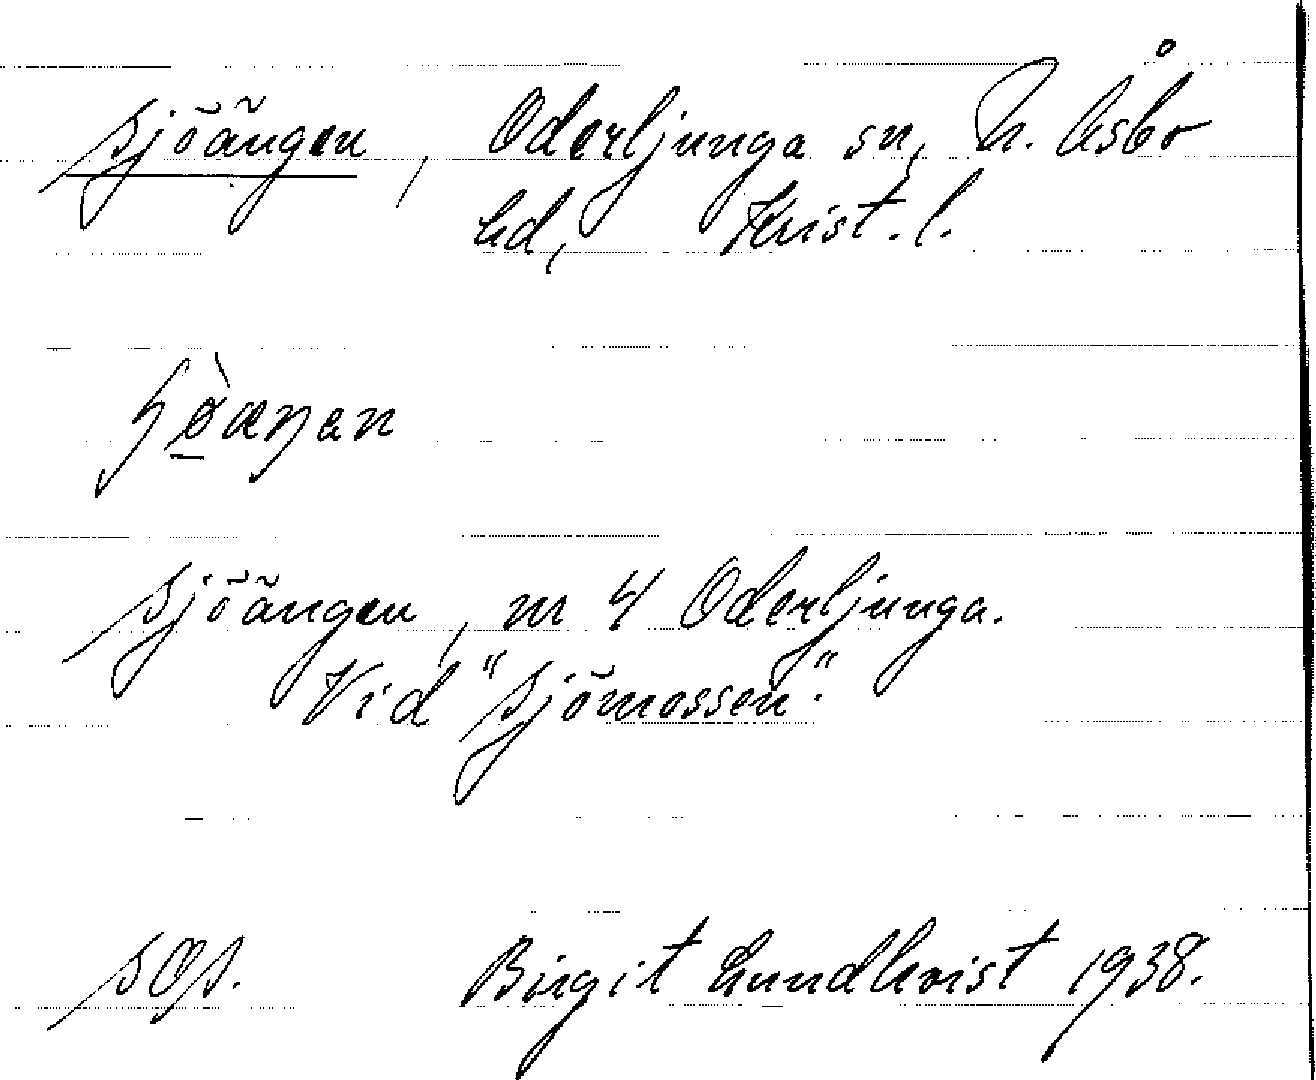 Sjöängen, Oderljunga sn, N. Åsbo
hd, Krist. l.
Sjöängen, m 4 Oderljunga.
Vid "Sjömossen".
SOs. Birgit Lundkvist 1938.